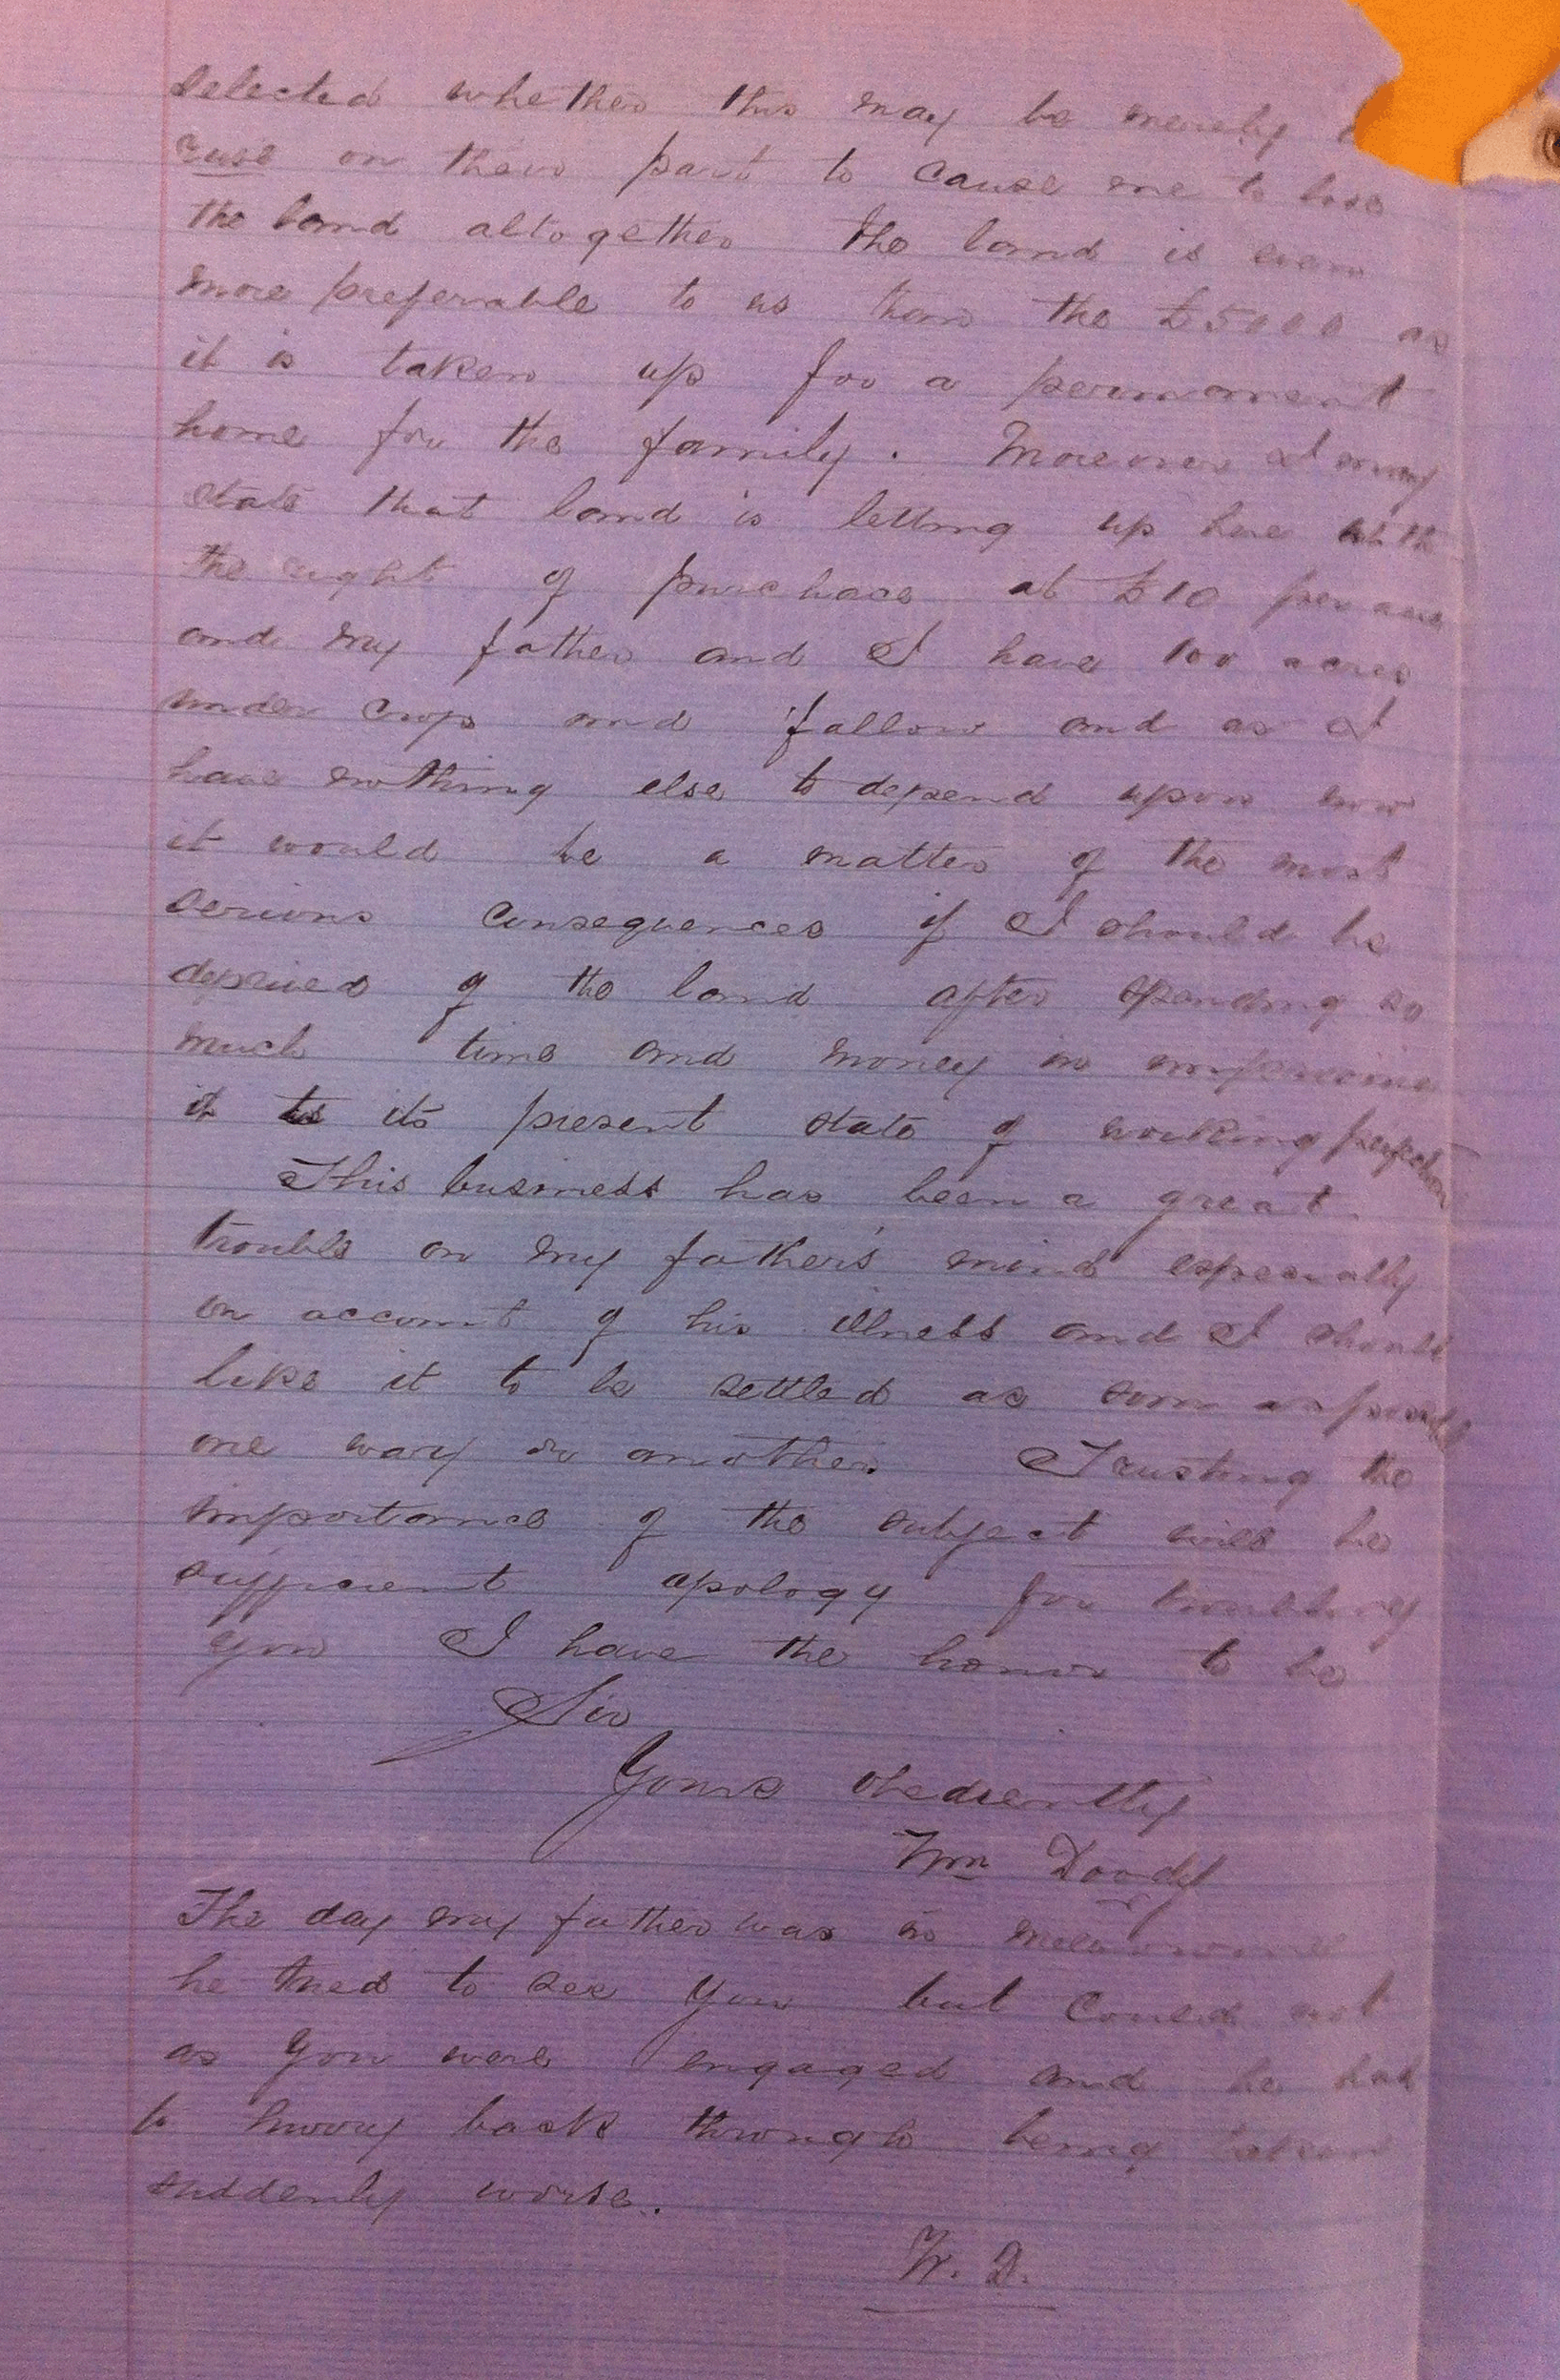 selected whether this may be merely a
ruse on their part to cause me to lose
the land altogether the land is even
more preferable to us than the £5000 as
it is taken up for a permanent
home for the family. Moreover I may
state that land is letting up here with
the right of purchase at £10 per acre
and my father and I have 100 acres
under crop and fallow and as I
have nothing else to depend upon now
it would be a matter of the most
serious consequences if I should be
deprived of the land after spending so
much time and money in improving
it to its present state of working perfection
This business has been a great
trouble on my father's mind especially
on account of his illness and I should
like it to be settled as soon as possible
one way or another. Trusting the
importance of the subject will be
sufficient apology for troubling
you I have the honor to be
Sir
Yours obediently
Wm Doody
The day my father was in Melbourne
he tried to see you but could not
as you were engaged and he had
to hurry back through being taken
suddenly worse.
W. D.